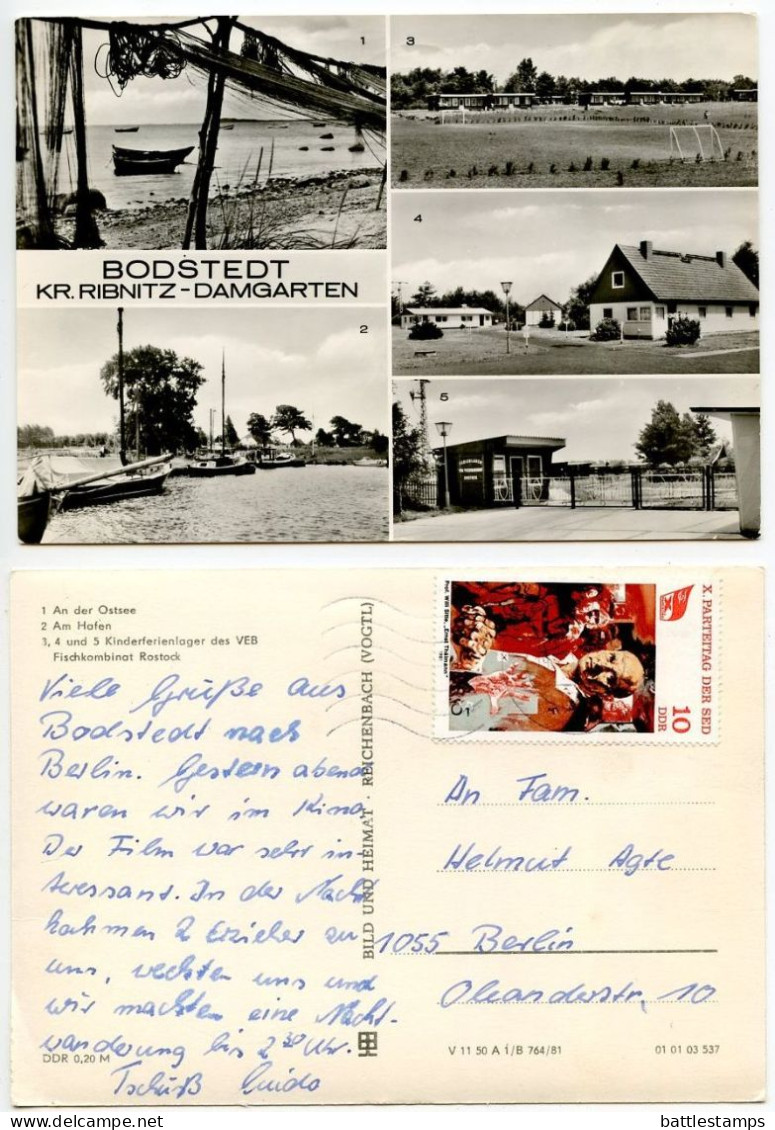 1
3
BODSTEDT
KR. RIBNITZ-DAMGARTEN
4
2
5
1 An der Ostsee
2 Am Hafen
3, 4 und 5 Kinderferienlager des VEB
Fischkombinat Rostock
Viele Grüße aus
Bodstedt nach
Berlin. Gestern abend
waren wir im Kino
Der Film war sehr in-
teressant. In der Nacht
kahmen 2 Erzieher zu
uns, weckten uns und
wir machten eine Nacht-
wanderung bis 2 30 Uhr.
Tschüß Guido
DDR 0,20 M
BILD UND HEIMAT · REICHENBACH (VOGTL)
Prof. Willi Sitte, „Ernst Thälmann"
1981
X. PARTEITAG DER SED
10
DDR
An Fam.
Helmut Agte
1055 Berlin
Oleanderstr. 10
V 11 50 A 1/B 764/81
01 01 03 537
battlestamps